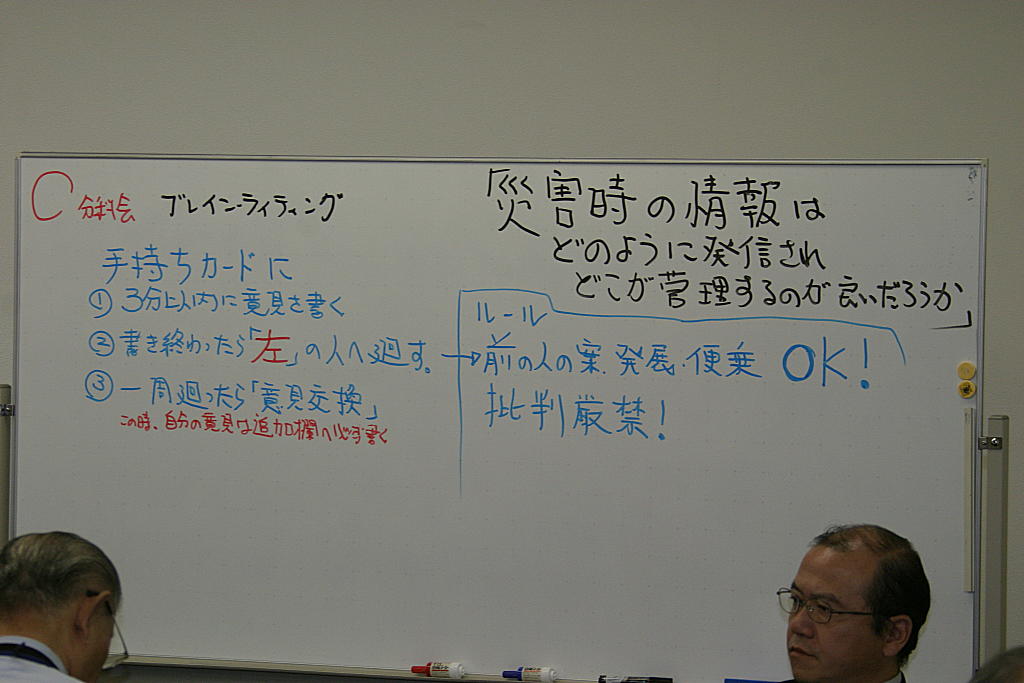 C分科会 ブレイン・ライティング
「災害時の情報は
どのように発信され
どこが管理するのが良いだろうか」
手持ちカードに
① 3分以内に意見を書く
② 書き終わったら「左」の人へ廻す。
③ 一周廻ったら「意見交換」
この時、自分の意見は追加欄へ必ず書く
ルール
前の人の案、発展・便乗 OK!
批判厳禁!